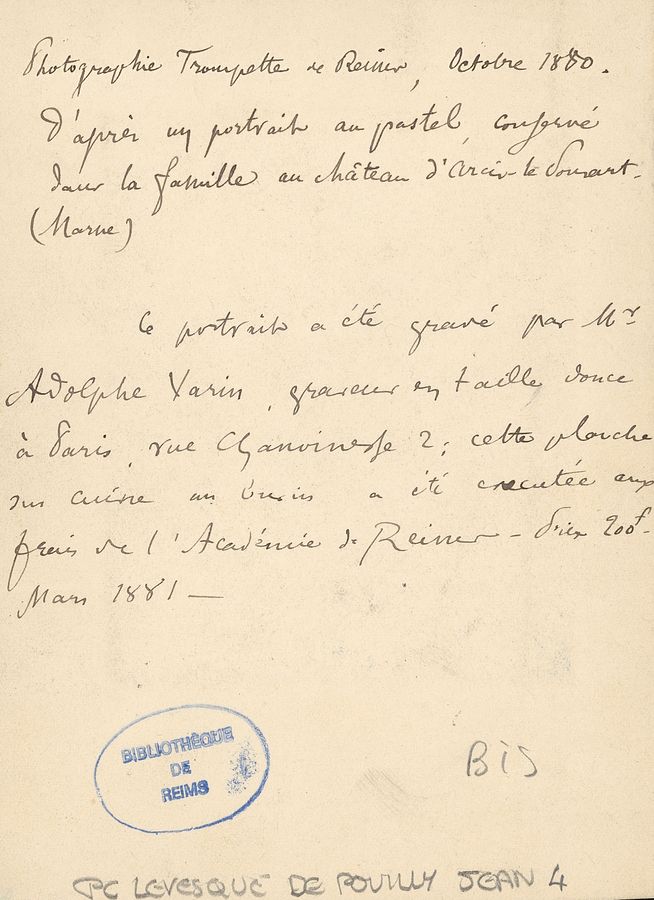 Photographie Trompette de Reims, Octobre 1880.
D'après un portrait au pastel, conservé
dans la famille au château d'Arcis-le-Ponsart.
(Marne)
Ce portrait a été gravé par Mr
Adolphe Varin, graveur en taille douce
à Paris, rue Chanoinesse 2; cette planche
sur cuivre au burin a été executée aux
frais de l'Académie de Reims - Prix 200f-
Mars 1881 —
BIBLIOTHÈQUE
DE
REIMS
BIS
PC LEVESQUE DE POUILLY JEAN 4